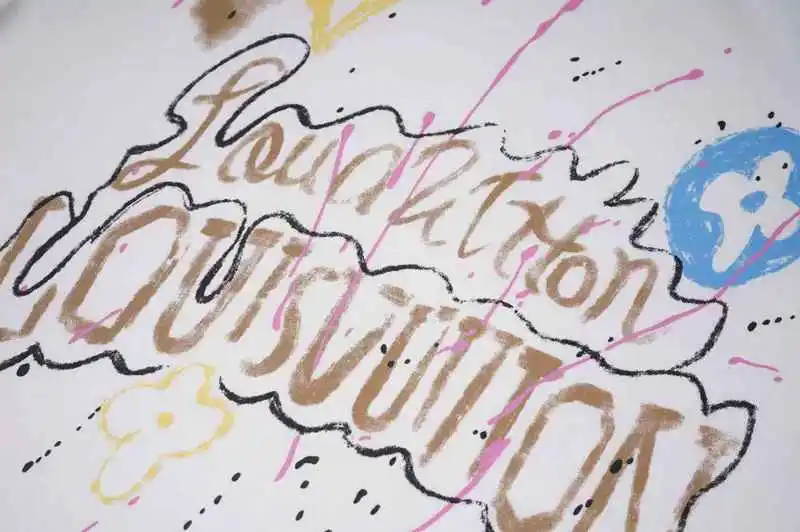 Louis Vuitton
LOUIS VUITTON